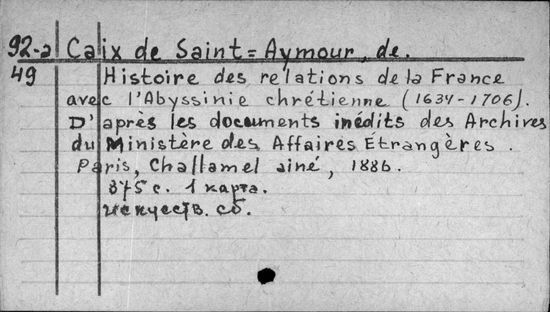 92-a Caix de Saint=Aymour, de.
49 Histoire des relations de la France
avec l'Abyssinie chrétienne (1634-1706).
D'après les documents inédits des Archives
du Ministère des Affaires Étrangères.
Paris, Challamel ainé, 1886.
375 с. 1 карта.
искусств. сб.